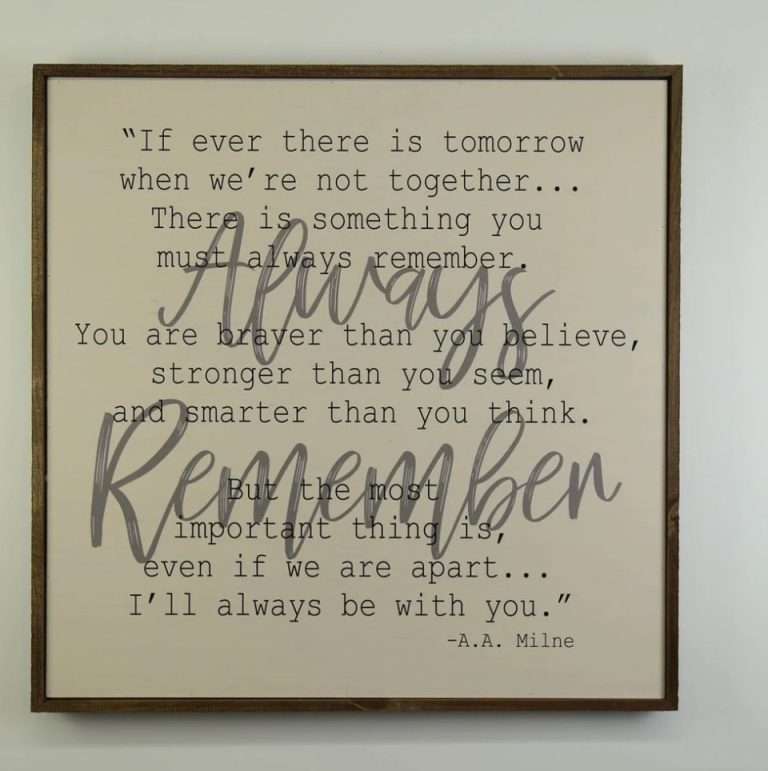 “If ever there is tomorrow
when we’re not together...
There is something you
must always remember.
Always
You are braver than you believe,
stronger than you seem,
and smarter than you think.
Remember
But the most
important thing is,
even if we are apart...
I’ll always be with you.”
-A.A. Milne